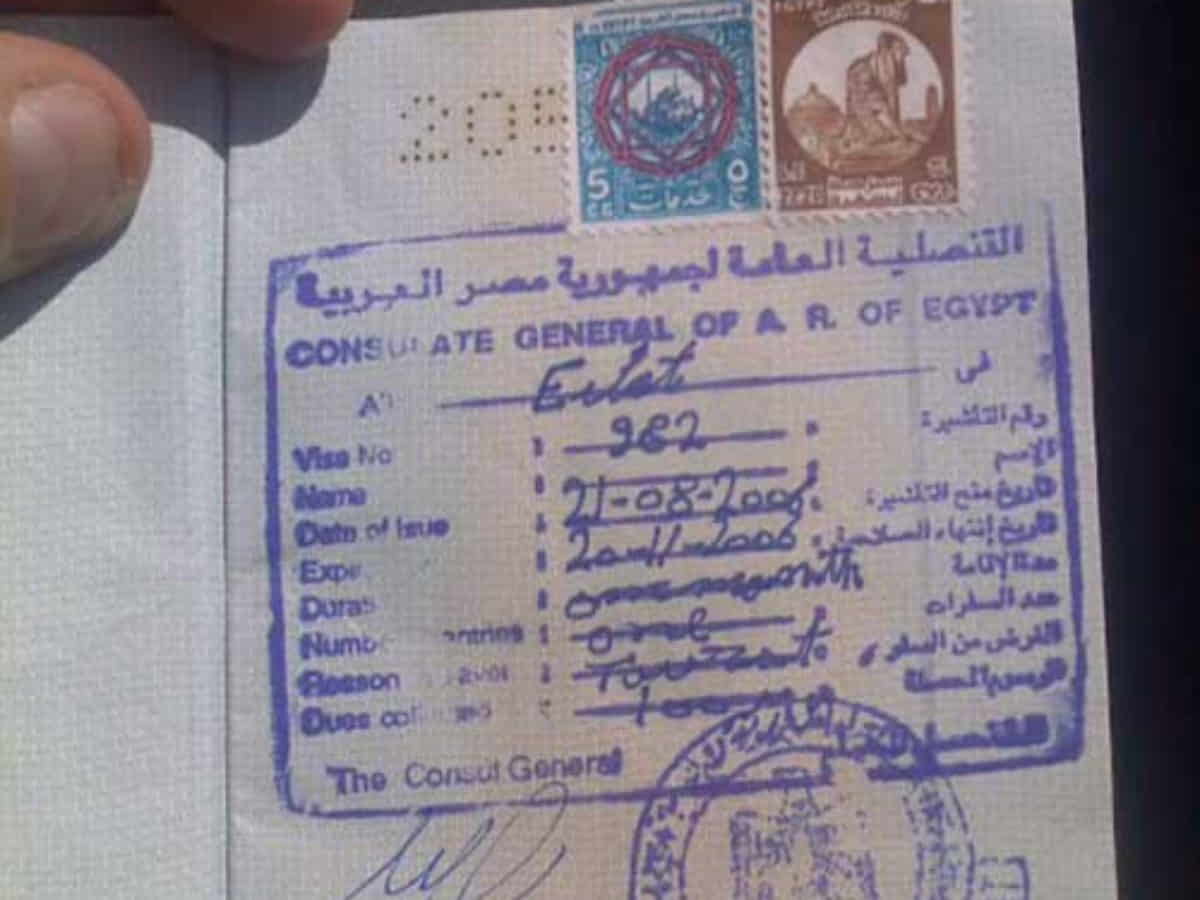 205
5 خدمات ٥
القنصلية العامة لجمهورية مصر العربية
CONSULATE GENERAL OF A. R. OF EGYPT
AT Eilat فى
Visa No : 982 : رقم التأشيرة
Name : : الاسم
Date of Issue : 21-08-2006 : تاريخ منح التأشيرة
Expi : 20-11-2006 : تاريخ إنتهاء الصلاحية
Durat : one month مدة الإقامة
Numbe entries : one : عدد السفرات
Reason : Tourist : الغرض من السفر
Dues col : 100 : الرسوم المحصلة
The Consul General القنصل العام